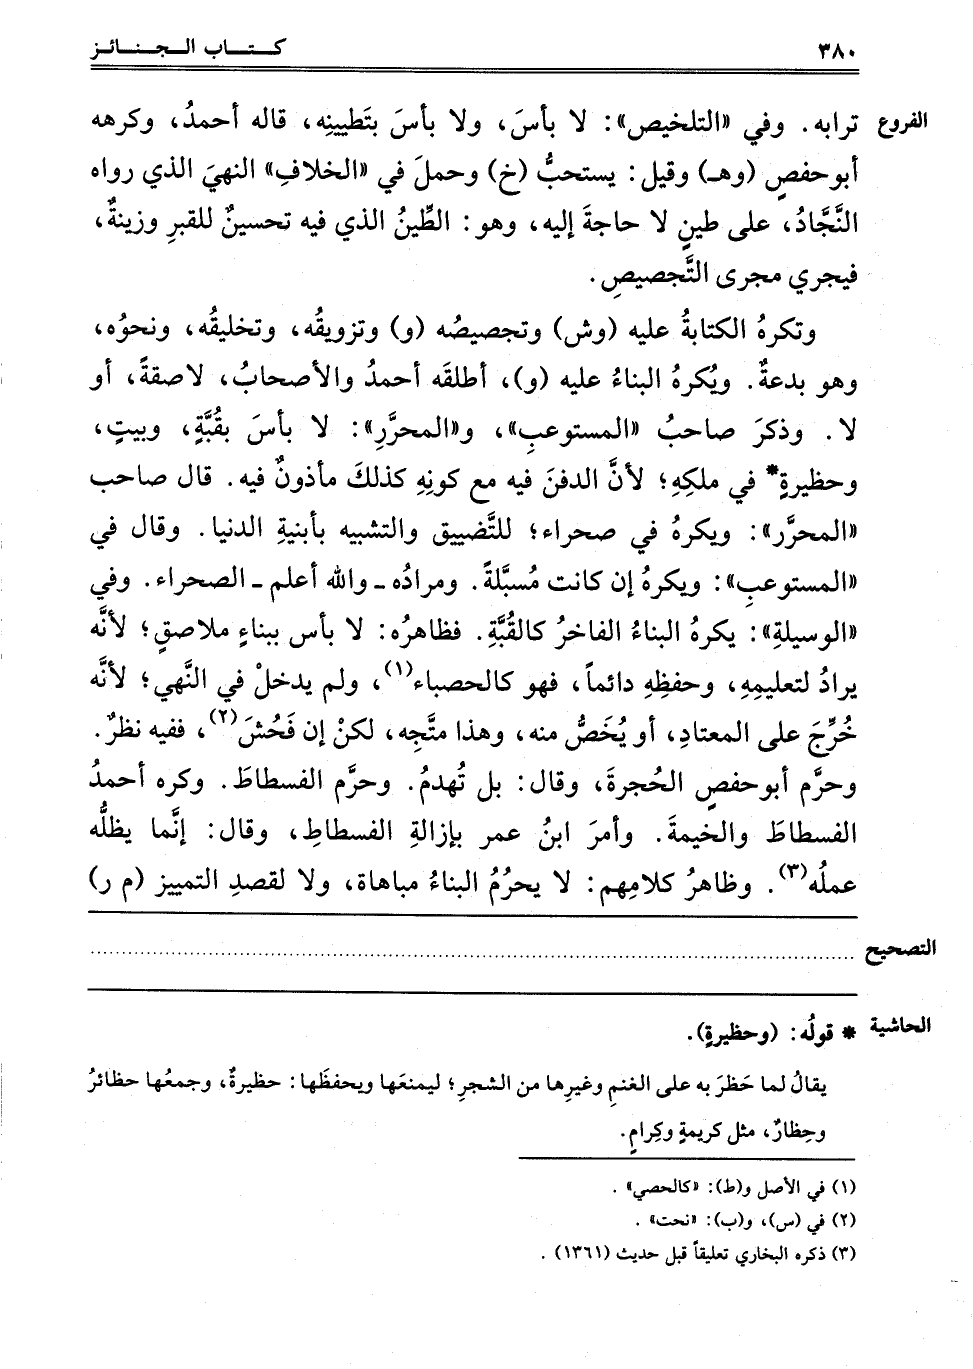 ٣٨٠ كـتـاب الـجـنـائـز
الفروع ترابه. وفي «التلخيص»: لا بأسَ، ولا بأسَ بتَطيينِه، قاله أحمدُ، وكرهه
أبوحفصٍ (وهـ) وقيل: يستحبُّ (خ) وحملَ في «الخلافِ» النهيَ الذي رواه
النَّجَّادُ، على طينٍ لا حاجةَ إليه، وهو: الطِّينُ الذي فيه تحسينٌ للقبرِ وزينةٌ،
فيجري مجرى التَّجصيصِ.
وتكرهُ الكتابةُ عليه (وش) وتجصيصُه (و) وتزويقُه، وتخليقُه، ونحوُه،
وهو بدعةٌ. ويُكرهُ البناءُ عليه (و)، أطلقَه أحمدُ والأصحابُ، لاصقةً، أو
لا. وذكرَ صاحبُ «المستوعبِ»، و«المحرَّرِ»: لا بأسَ بقُبَّةٍ، وبيتٍ،
وحظيرةٍ* في ملكِهِ؛ لأنَّ الدفنَ فيه مع كونِهِ كذلكَ مأذونٌ فيه. قال صاحب
«المحرَّر»: ويكرهُ في صحراء؛ للتَّضييق والتشبيه بأبنيةِ الدنيا. وقال في
«المستوعبِ»: ويكرهُ إن كانت مُسبَّلةً. ومرادُه ـ والله أعلم ـ الصحراء. وفي
«الوسيلةِ»: يكرهُ البناءُ الفاخرُ كالقُبَّةِ. فظاهرُه: لا بأس ببناءٍ ملاصقٍ؛ لأنَّه
يرادُ لتعليمِهِ، وحفظِهِ دائماً، فهو كالحصباء(١)، ولم يدخلْ في النَّهي؛ لأنَّه
خُرِّجَ على المعتادِ، أو يُخَصُّ منه، وهذا متَّجِه، لكنْ إن فَحُشَ(٢)، ففيه نظرٌ.
وحرَّم أبوحفصٍ الحُجرةَ، وقال: بل تُهدمُ. وحرَّم الفسطاطَ. وكره أحمدُ
الفسطاطَ والخيمةَ. وأمرَ ابنُ عمر بإزالةِ الفسطاطِ، وقال: إنَّما يظلُّه
عملُه(٣). وظاهرُ كلامِهم: لا يحرُمُ البناءُ مباهاة، ولا لقصدِ التمييز (م ر)
التصحيح ................................................................
الحاشية * قولُه: (وحظيرةٍ).
يقالُ لما حَظرَ به على الغنمِ وغيرِها من الشجرِ؛ ليمنعَها ويحفظَها: حظيرةٌ، وجمعُها حظائرُ
وحِظارٌ، مثل كريمةٍ وكِرامٍ.
(١) في الأصل و(ط): «كالحصي» .
(٢) في (س)، و(ب): «نحت» .
(٣) ذكره البخاري تعليقاً قبل حديث (١٣٦١) .